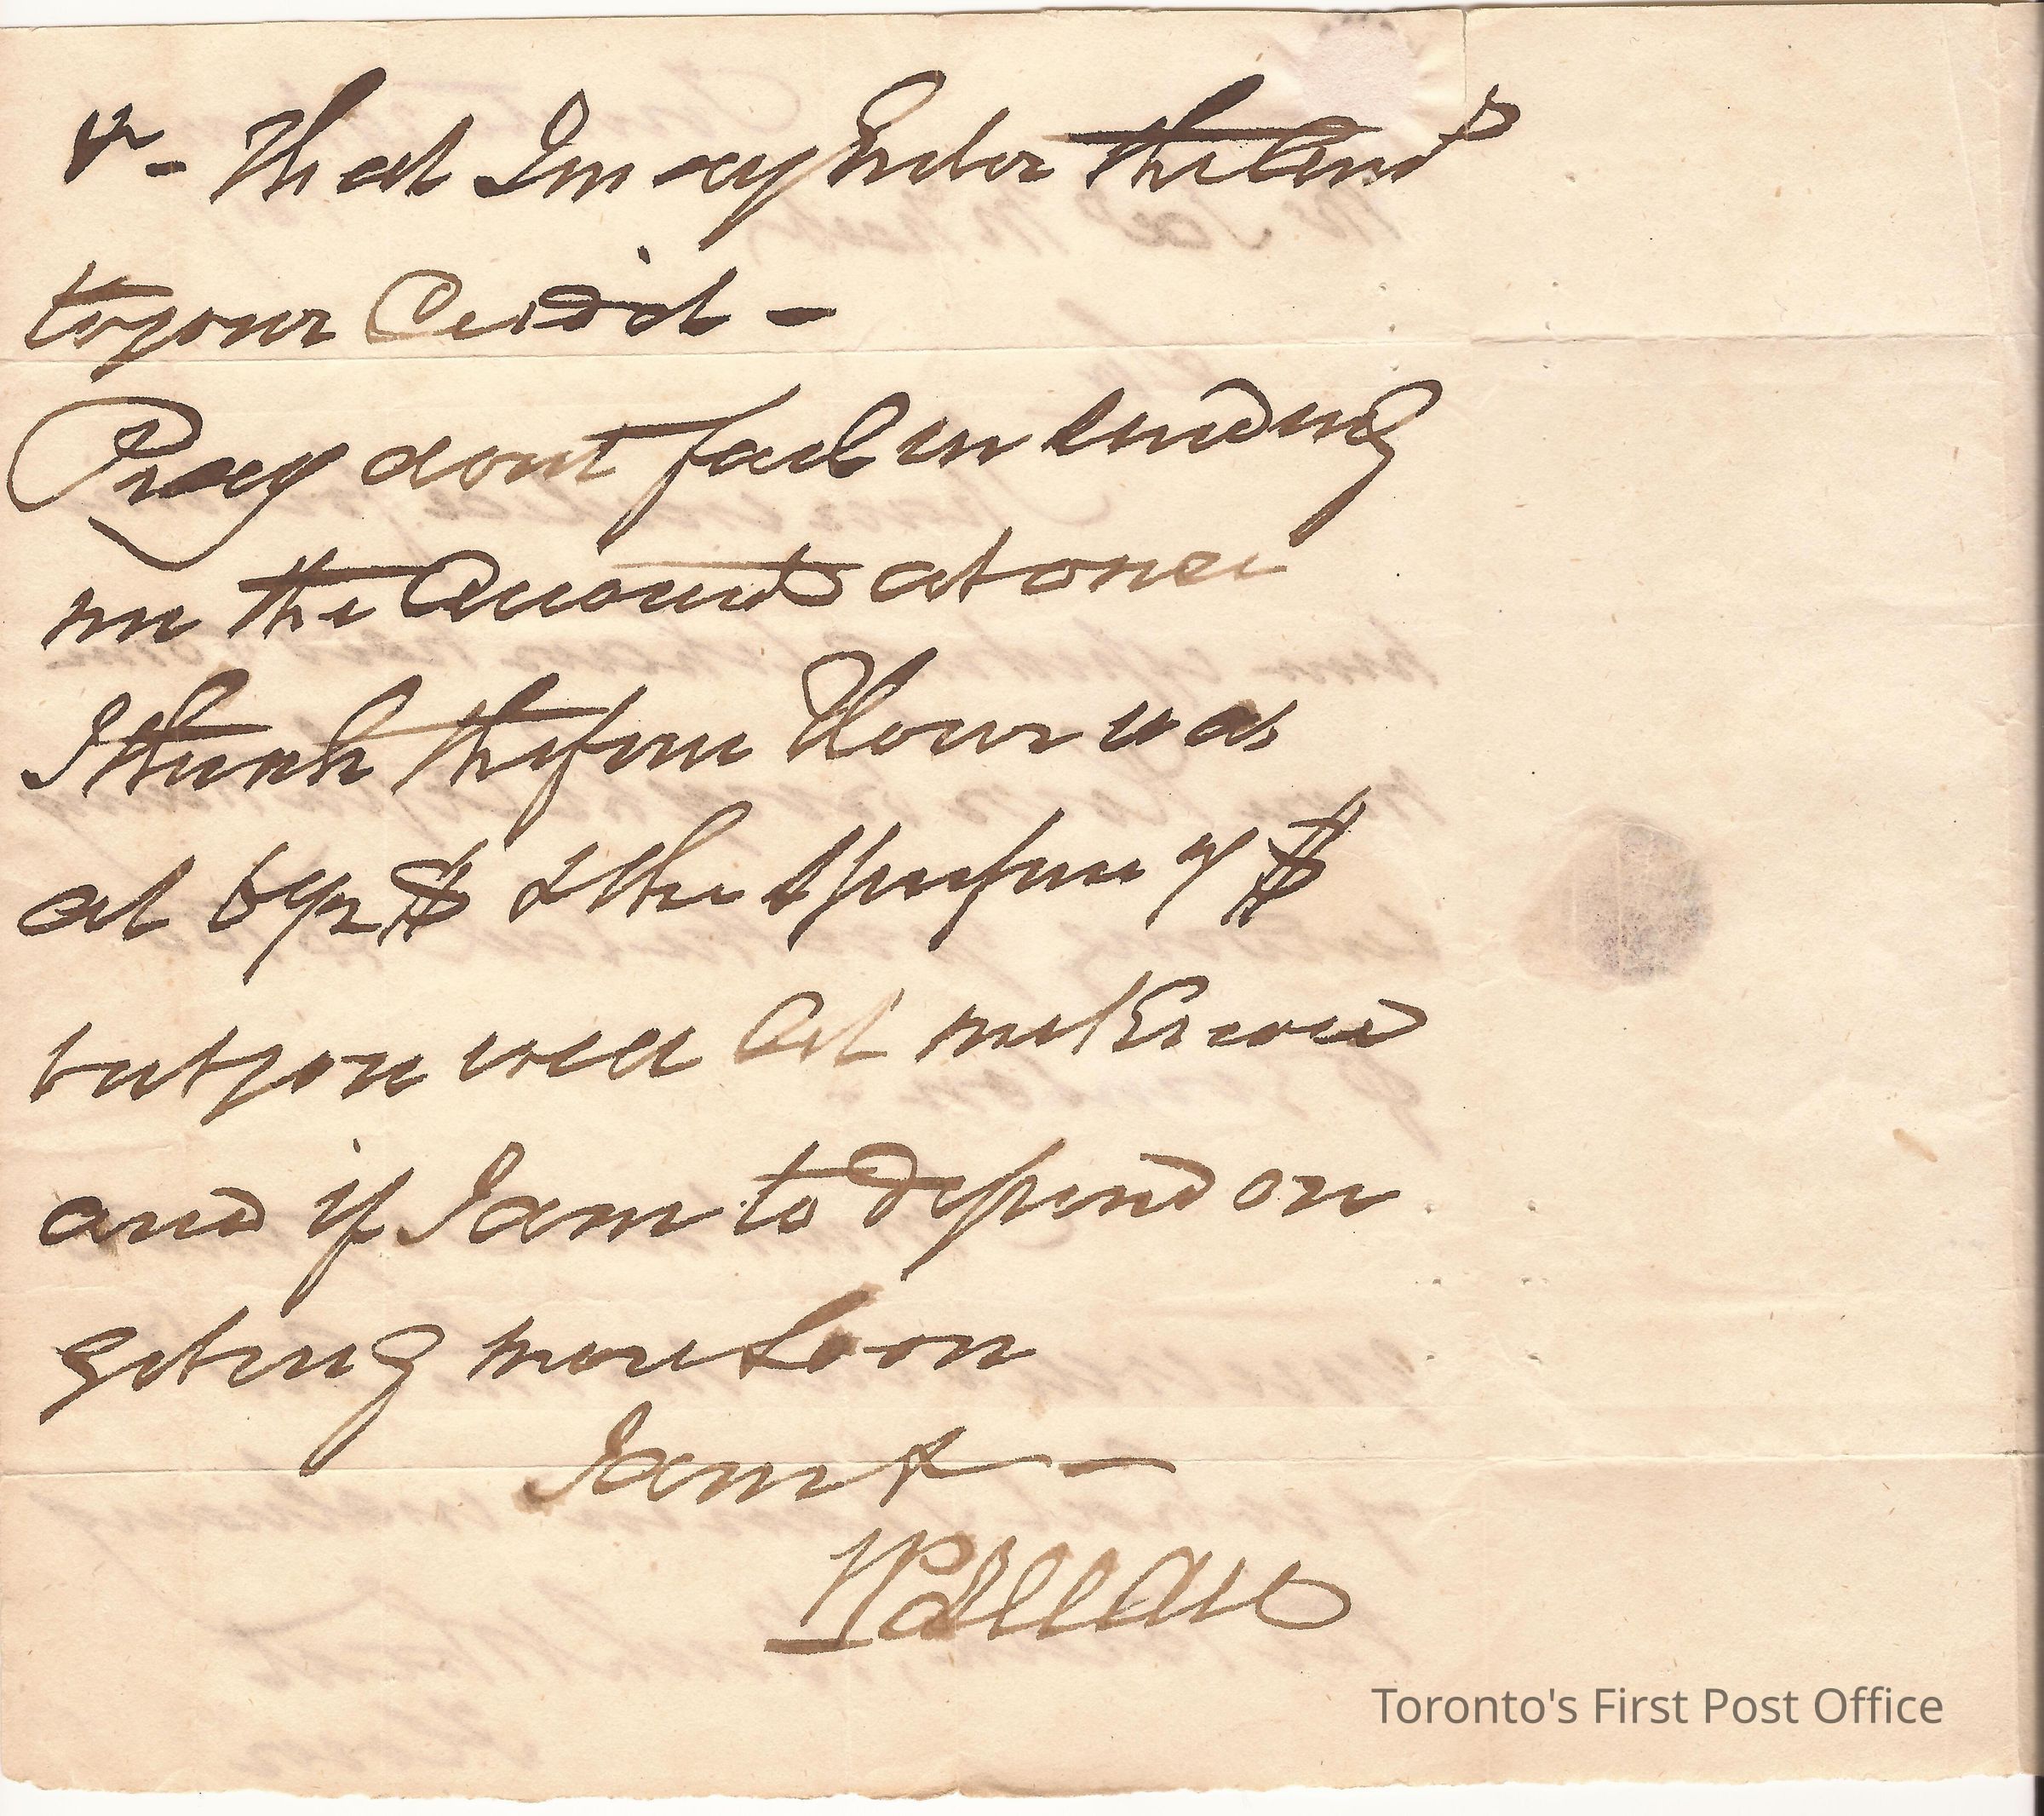 &c - That I may Enter the Am't
to your Credit -
Pray dont fail in sending
me the Account at once
I think the fine Flour was
at 6 & the Superfine 7 $
but you will let me know
and if I am to depend on
geting more Soon
I am &c -
Toronto's First Post Office